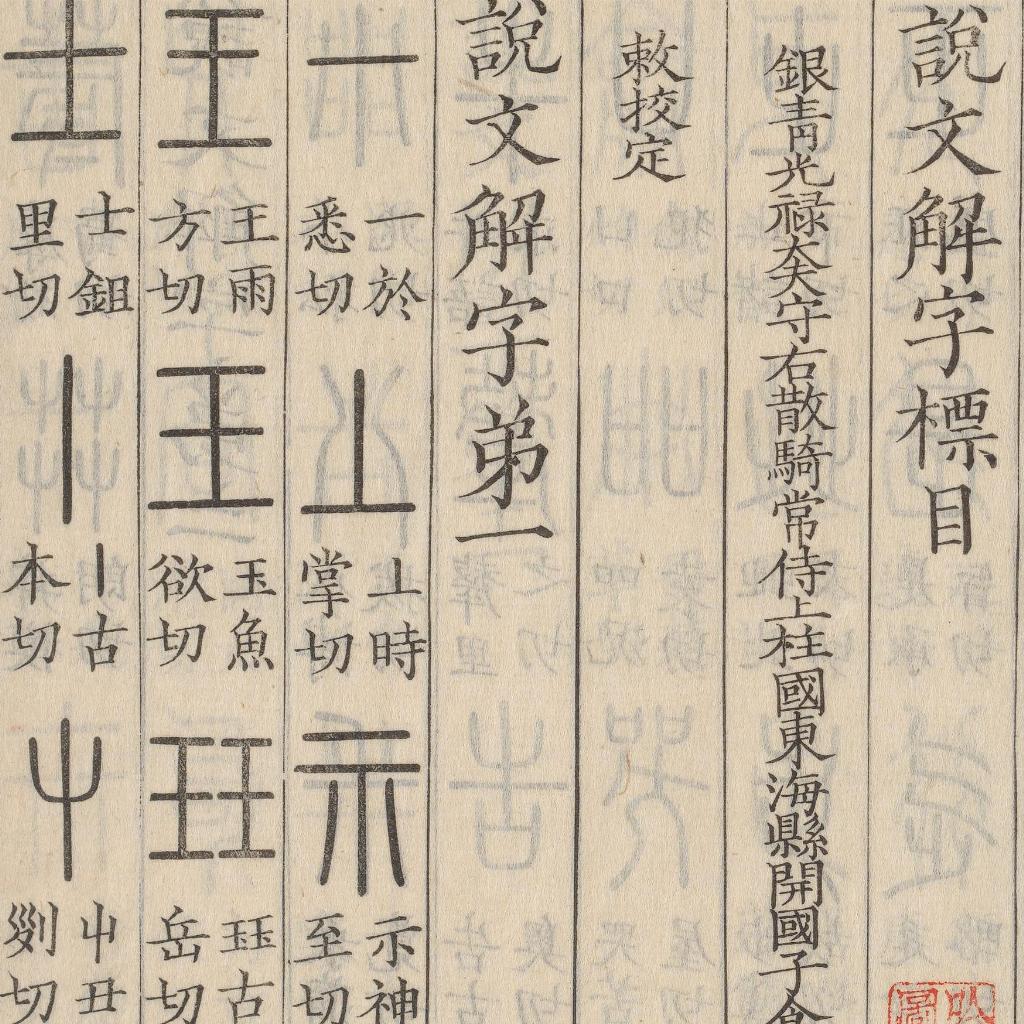 說文解字標目
銀青光祿大夫守右散騎常侍上柱國東海縣開國子食
敕挍定
說文解字弟一
一 一於悉切 丄 丄時掌切 示 示神至切
王 王雨方切 玉 玉魚欲切 玨 玨古岳切
士 士鉏里切 丨 丨古本切 屮 屮丑
切